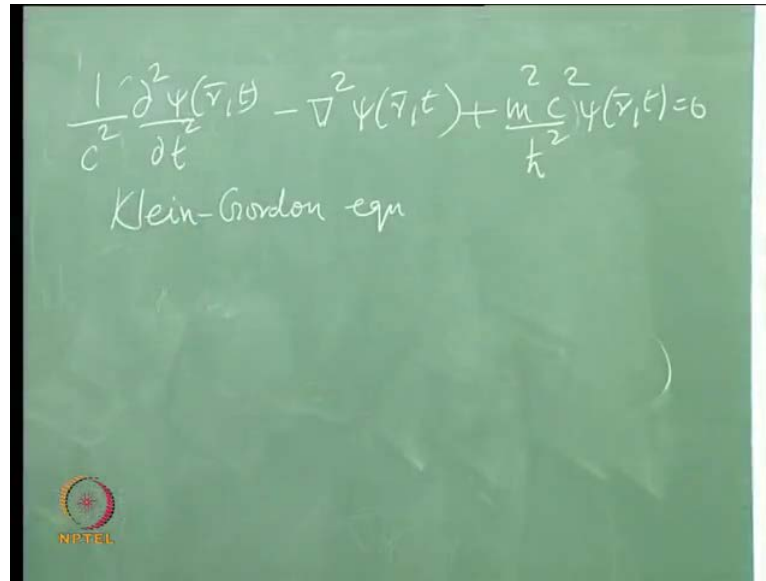 1/c² ∂²ψ(r̄,t)/∂t² − ∇²ψ(r̄,t) + m²c²/ħ² ψ(r̄,t) = 0
Klein-Gordon eqn
NPTEL